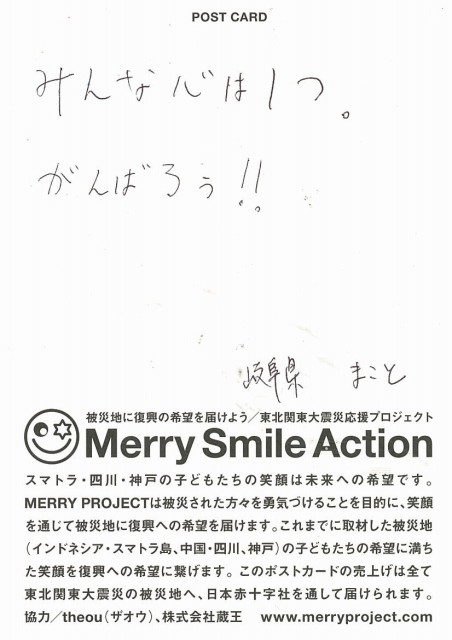 POST CARD
みんな心は1つ。
がんばろう!!
岐阜県 まこと
被災地に復興の希望を届けよう/東北関東大震災応援プロジェクト
Merry Smile Action
スマトラ・四川・神戸の子どもたちの笑顔は未来への希望です。
MERRY PROJECTは被災された方々を勇気づけることを目的に、笑顔
を通じて被災地に復興への希望を届けます。これまでに取材した被災地
(インドネシア・スマトラ島、中国・四川、神戸)の子どもたちの希望に満ち
た笑顔を復興への希望に繋げます。このポストカードの売上げは全て
東北関東大震災の被災地へ、日本赤十字社を通して届けられます。
協力/theou(ザオウ)、株式会社蔵王 www.merryproject.com